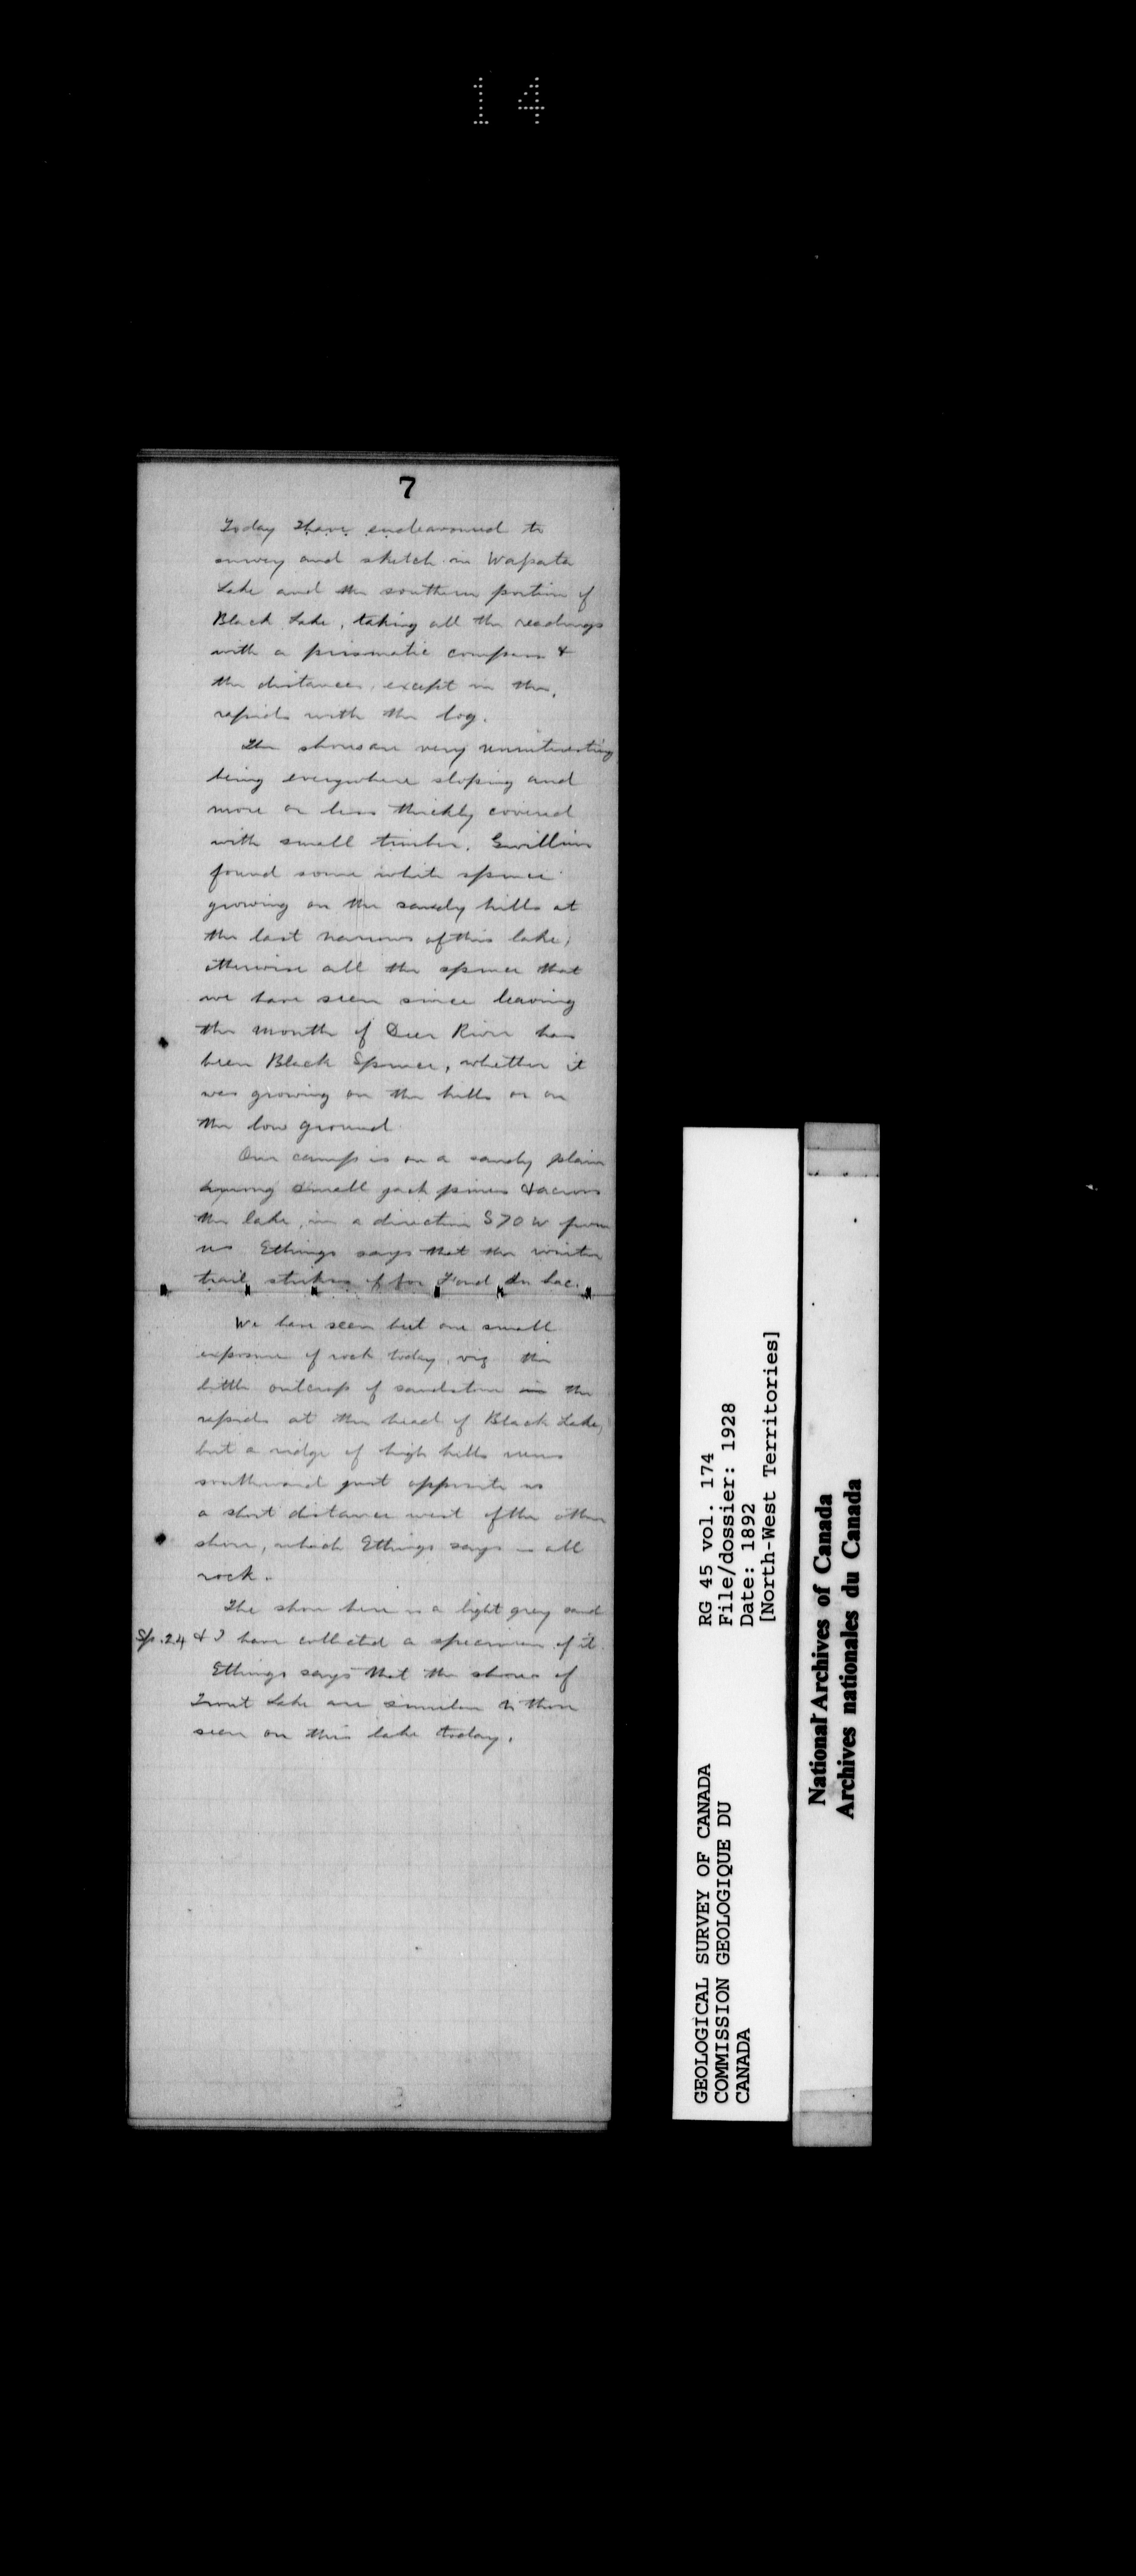 14
7
Today I have endeavoured to
survey and sketch in Wapata
Lake and the southern portion of
Black Lake, taking all the readings
with a prismatic compass &
the distances, except in the
rapids with the log.
The shores are very uninteresting
being everywhere sloping and
more or less thickly covered
with small timber. Gwillim
found some white spruce
growing on the sandy hills at
the last narrows of this lake;
otherwise all the spruce that
we have seen since leaving
the mouth of Deer River has
been Black Spruce, whether it
was growing on the hills or on
the low ground.
Our camp is on a sandy plain
among small jack pines & across
the lake, in a direction S70W from
us Ethings says that the winter
trail strikes off for Fond du Lac.
We have seen but one small
exposure of rock today, viz the
little outcrop of sandstone in the
rapids at the head of Black Lake,
but a ridge of high hills runs
southward just opposite us
a short distance west of the other
shore, which Ethings says is all
rock.
The shore here is a light grey sand
Sp. 24 & I have collected a specimen of it.
Ethings says that the shores of
Trout Lake are similar to those
seen on this lake today.
3
GEOLOGICAL SURVEY OF CANADA
COMMISSION GEOLOGIQUE DU
CANADA
RG 45 vol. 174
File/dossier: 1928
Date: 1892
[North-West Territories]
National Archives of Canada
Archives nationales du Canada